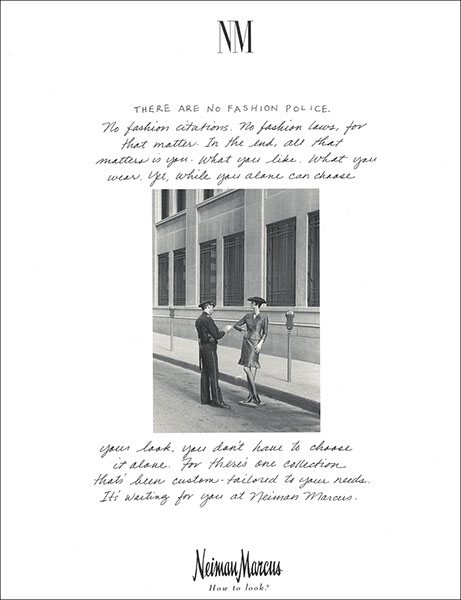 NM
THERE ARE NO FASHION POLICE.
No fashion citations. No fashion laws, for
that matter. In the end, all that
matters is you. What you like. What you
wear. Yet, while you alone can choose
your look, you don't have to choose
it alone. For there's one collection
that's been custom-tailored to your needs.
It's waiting for you at Neiman Marcus.
Neiman Marcus
How to look.®